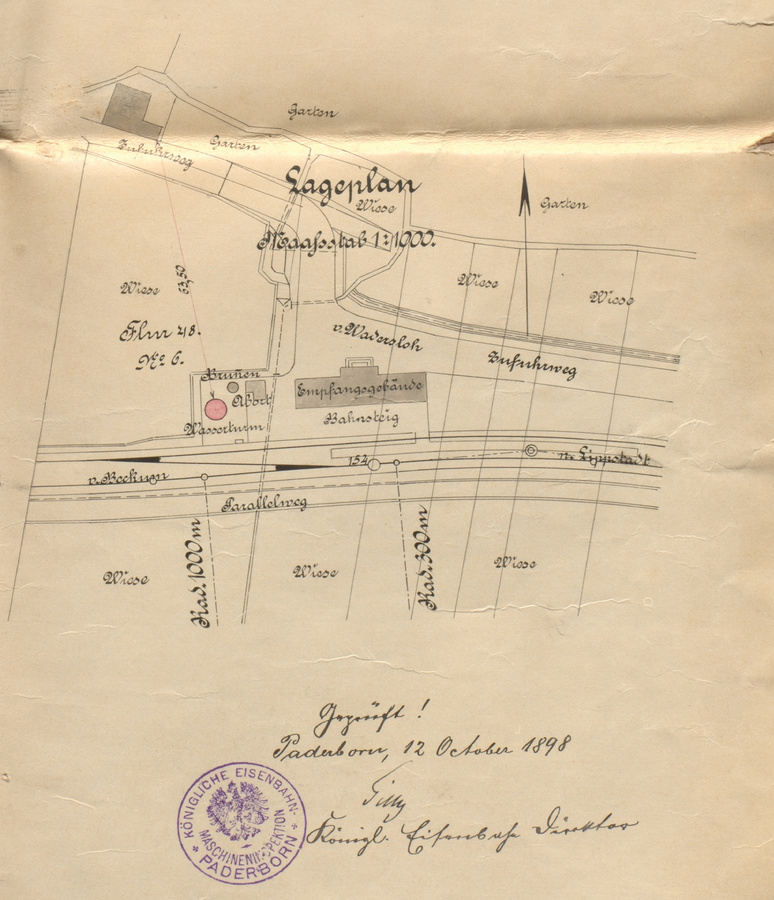 Garten
Garten
Zufuhrweg
Lageplan
Wiese
Garten
Maaſsstab 1:1000.
Wiese
63,50
Wiese
Wiese
Flur 48.
No 6.
v. Wadersloh
Zufuhrweg
Brunnen
Abort
Empfangsgebäude
Wasserturm
Bahnsteig
154
n. Lippstadt
v. Beckum
Parallelweg
Rad. 1000m
Rad. 300m
Wiese
Wiese
Wiese
Geprüft!
Paderborn, 12 October 1898
Tilly
Königl. Eisenbahn Direktor
KÖNIGLICHE EISENBAHN-
MASCHINENINSPEKTION
* PADERBORN *